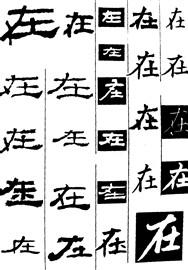 在在在在在
在在在在在
在在在在在在
在在在在在
在在在在